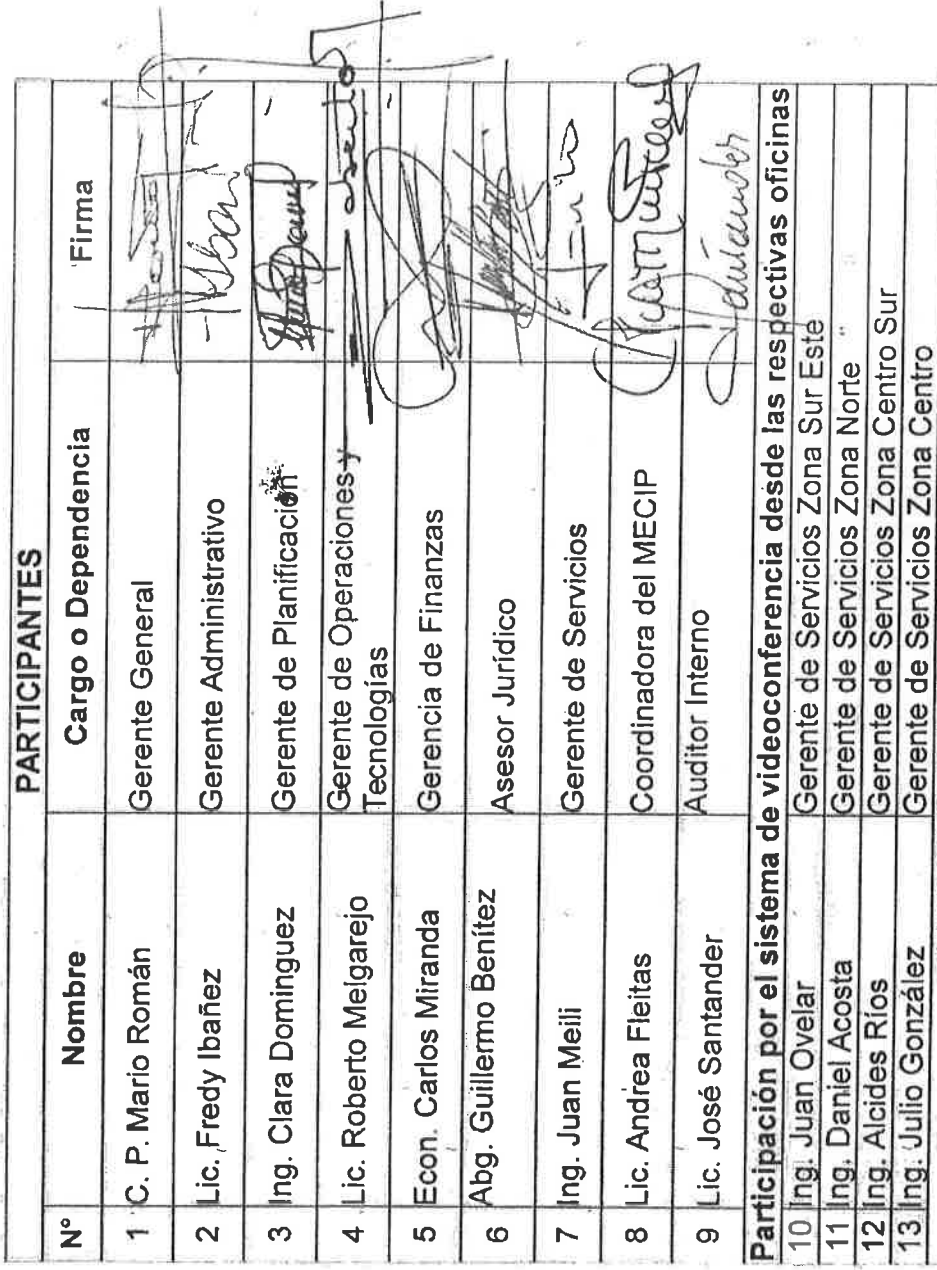 PARTICIPANTES
N° Nombre Cargo o Dependencia Firma
1 C. P. Mario Román Gerente General
2 Lic. Fredy Ibañez Gerente Administrativo
3 Ing. Clara Dominguez Gerente de Planificación
4 Lic. Roberto Melgarejo Gerente de Operaciones y
Tecnologías
5 Econ. Carlos Miranda Gerencia de Finanzas
6 Abg. Guillermo Benítez Asesor Jurídico
7 Ing. Juan Meili Gerente de Servicios
8 Lic. Andrea Fleitas Coordinadora del MECIP
9 Lic. José Santander Auditor Interno
Participación por el sistema de videoconferencia desde las respectivas oficinas
10 Ing. Juan Ovelar Gerente de Servicios Zona Sur Este
11 Ing. Daniel Acosta Gerente de Servicios Zona Norte
12 Ing. Alcides Ríos Gerente de Servicios Zona Centro Sur
13 Ing. Julio González Gerente de Servicios Zona Centro